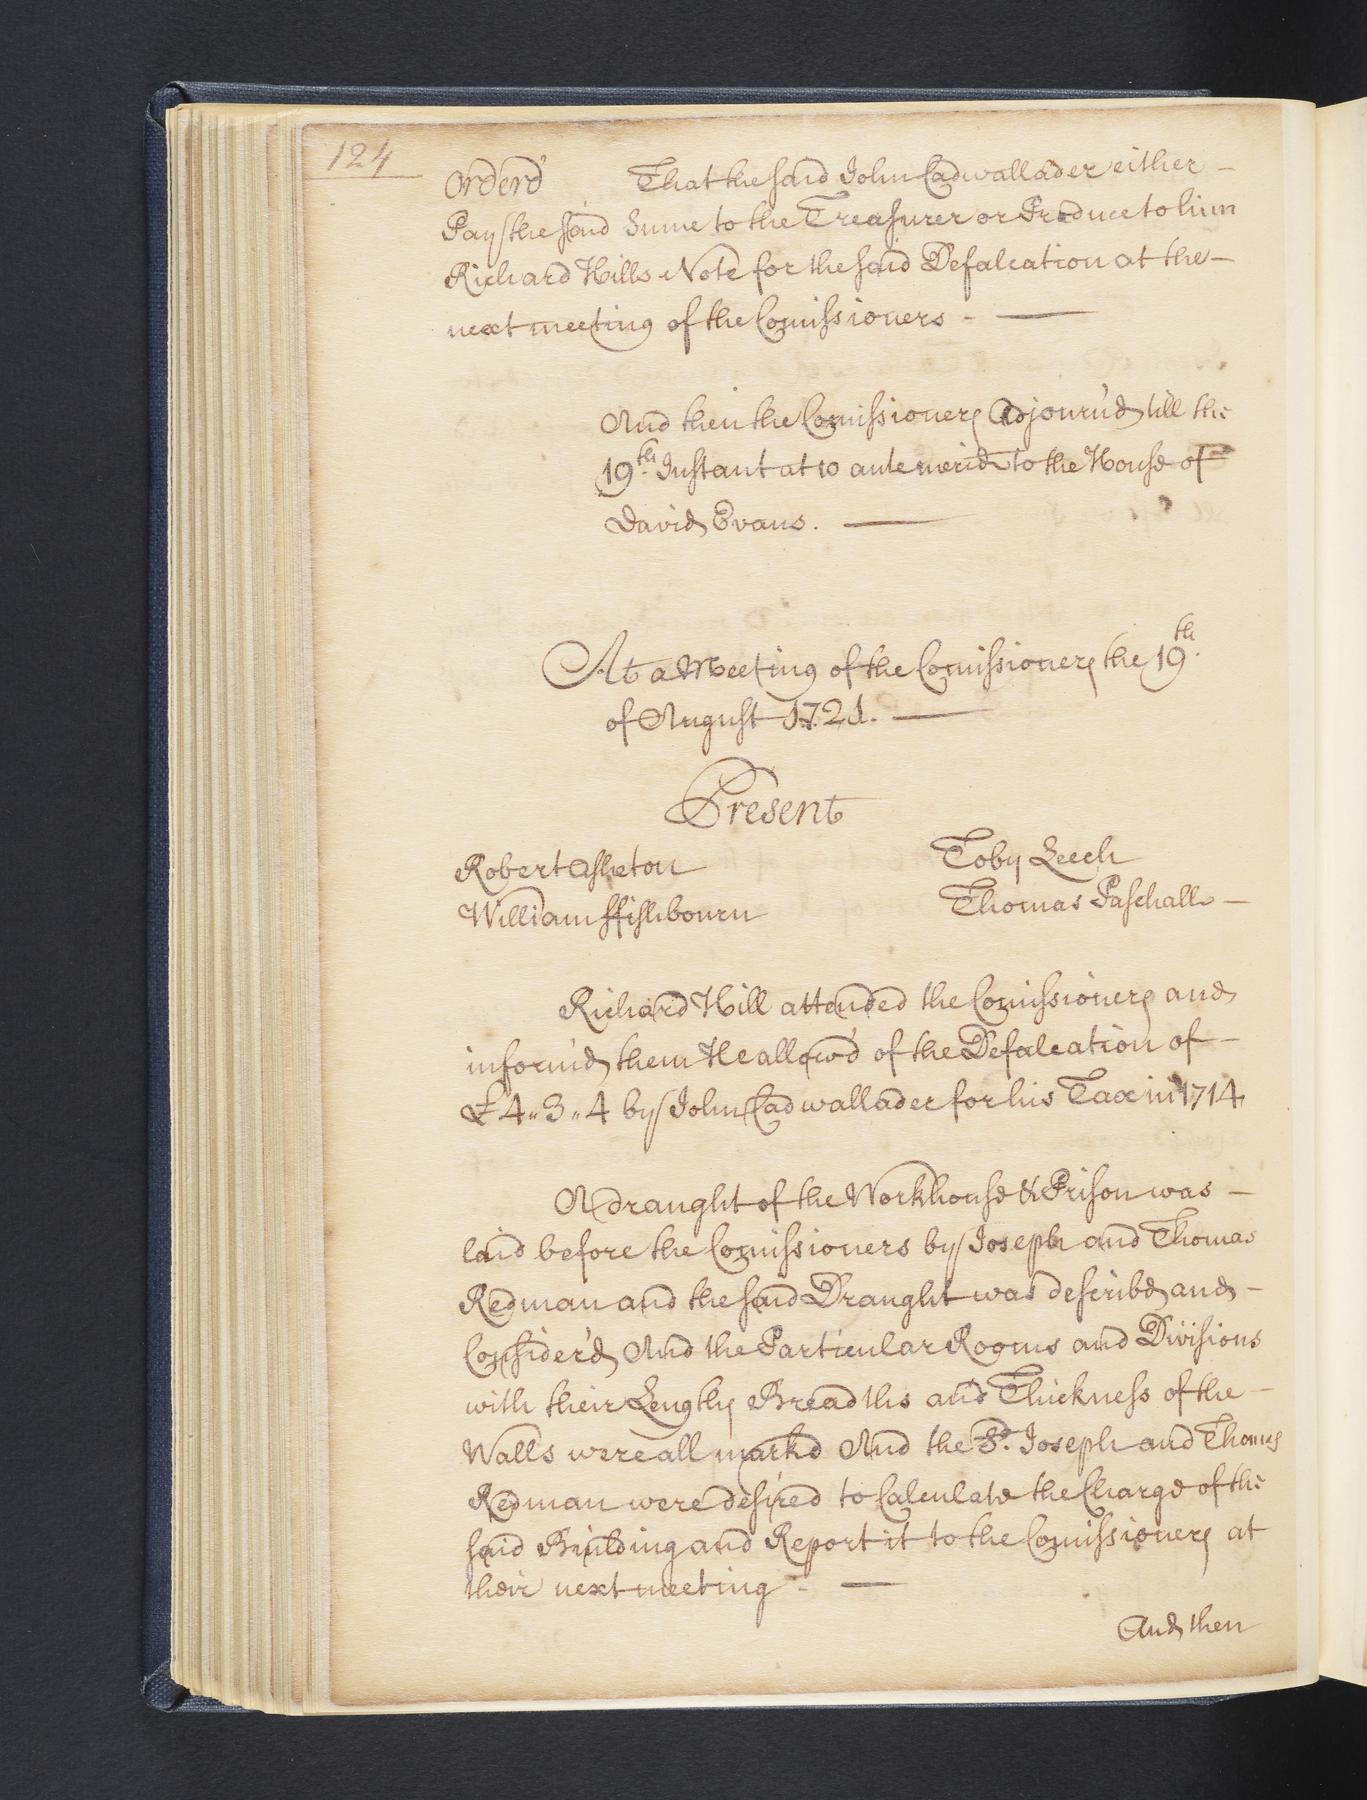 124
Orderd That the said John Cadwallader either –
Pay the said Sume to the Treasurer or Produce to him
Richard Hills Note for the said Defalcation at the –
next meeting of the Comissioners –
And then the Comissioners Adjourn'd till the
19th. Instant at 10 ante merid to the House of
David Evans.
At a Meeting of the Comissioners the 19th.
of August 1721.
Present
Robert Asheton Toby Leech
William ffishbourn Thomas Paschall –
Richard Hill attended the Comissioners and
inform'd them He allow'd of the Defalcation of –
£4„3„4 by John Cadwallader for his Tax in 1714
A draught of the Workhouse & Prison was –
laid before the Comissioners by Joseph and Thomas
Redman and the said Draught was describd and –
Consider'd And the Particular Rooms and Divisions
with their Lengths Breadths and Thickness of the –
Walls were all markd And the Sd. Joseph and Thomas
Redman were desired to Calculate the Charge of the
said Building and Report it to the Comissioners at
their next meeting –
And then